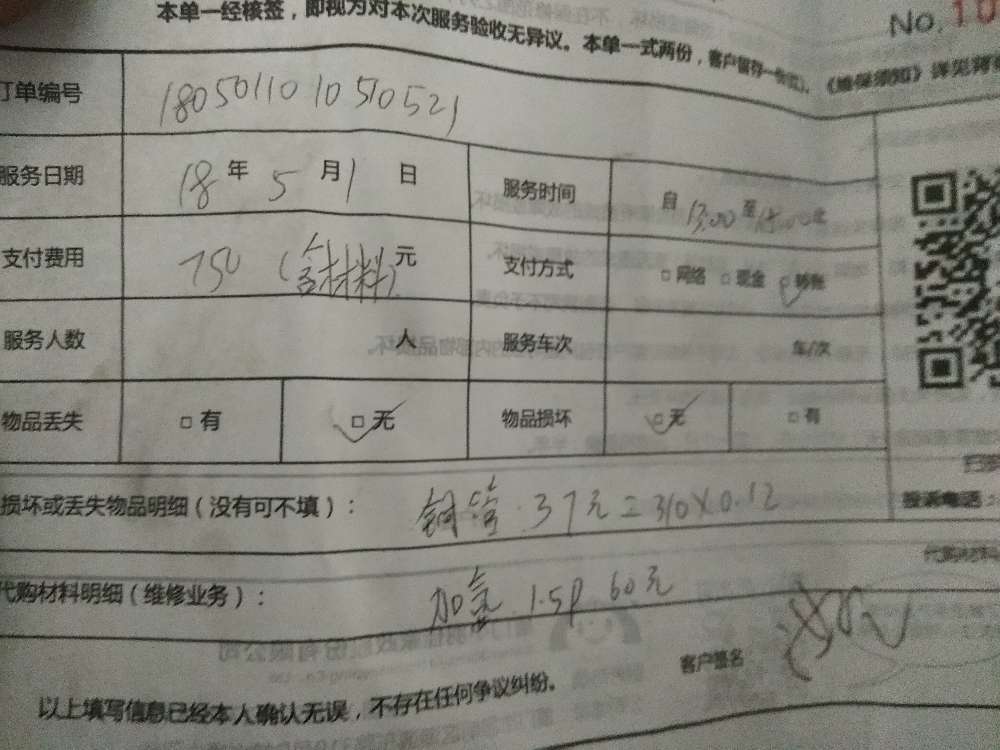 本单一经核签，即视为对本次服务验收无异议。本单一式两份，客户留存一份
No. 10
订单编号 1805011010510521
服务日期 18 年 5 月 1 日 服务时间 自 13:00 至
支付费用 750 (含材料) 元 支付方式 □ 网络 □ 现金 □ 转账
服务人数 人 服务车次 车/次
物品丢失 □ 有 □ 无 物品损坏 □ 无 □ 有
损坏或丢失物品明细（没有可不填）： 铜管 . 37元 = 310×0.12
投诉电话：
代购材料明细（维修业务）： 加氟 1.5P 60元
客户签名
以上填写信息已经本人确认无误，不存在任何争议纠纷。